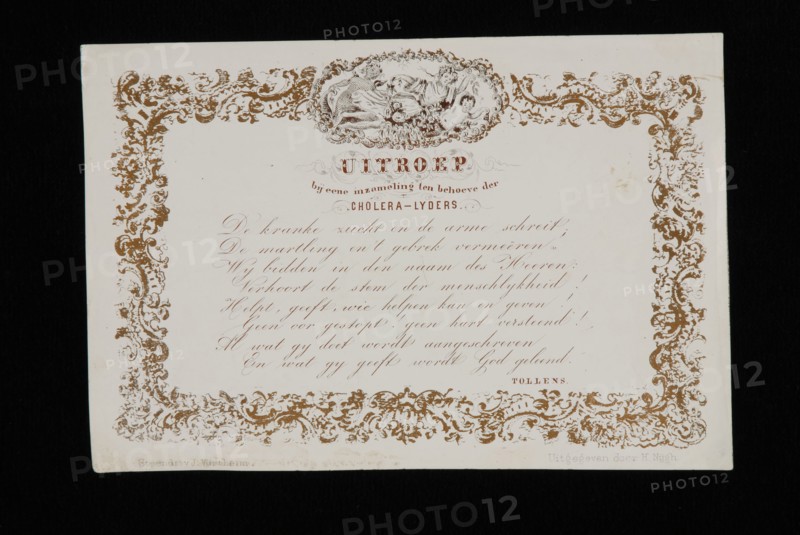 UITROEP
by eene inzameling ten behoeve der
CHOLERA-LYDERS.
De kranke zucht en de arme schreit;
De martling en 't gebrek vermeêren.
Wij bidden in den naam des Heeren:
Verhoort de stem der menschlykheid!
Helpt, geeft, wie helpen kan en geven!
Geen oor gestopt! geen hart versteend!
Al wat gy doet wordt aangeschreven
En wat gy geeft wordt God geleend.
TOLLENS.
Uitgegeven door H. Nygh.
PHOTO12